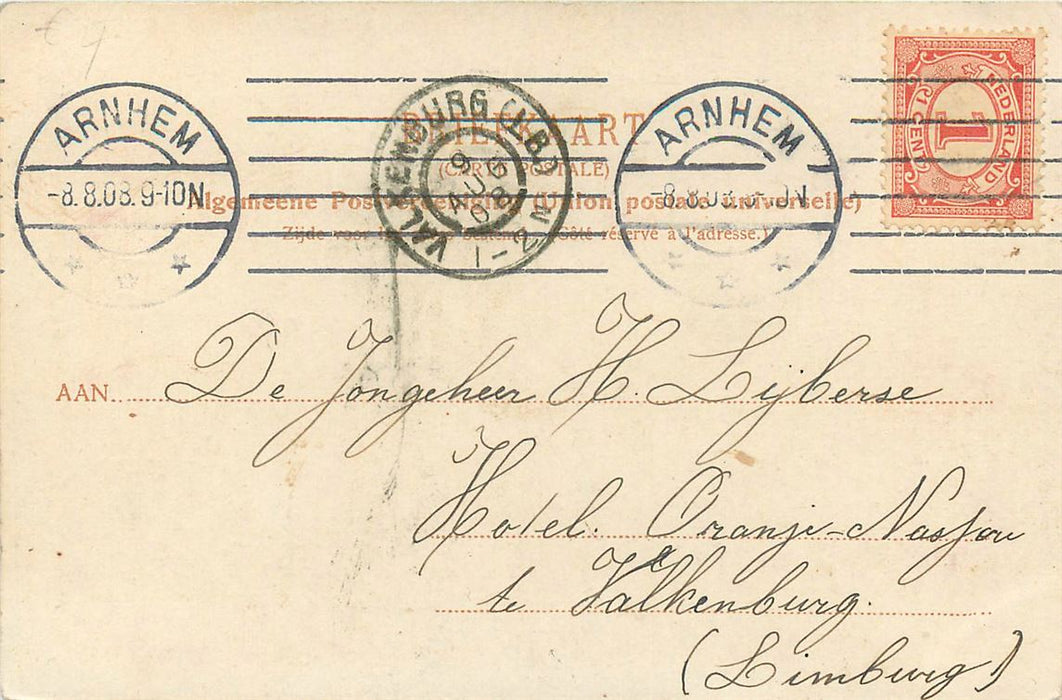 € 4
ARNHEM
-8.8.08.9-10N
VALKENBURG (LB)
9 AUG 08
1-2 N
ARNHEM
-8.8.0
NEDERLAND
1
1 CENT 1
BRIEFKAART
(CARTE POSTALE)
Algemeene Postvereeniging (Union postale universelle)
Zijde voor het adres bestemd. (Côté réservé à l'adresse.)
AAN De Jongeheer H. Lijberse
Hotel. Oranje-Nassau
te Valkenburg.
(Limburg)